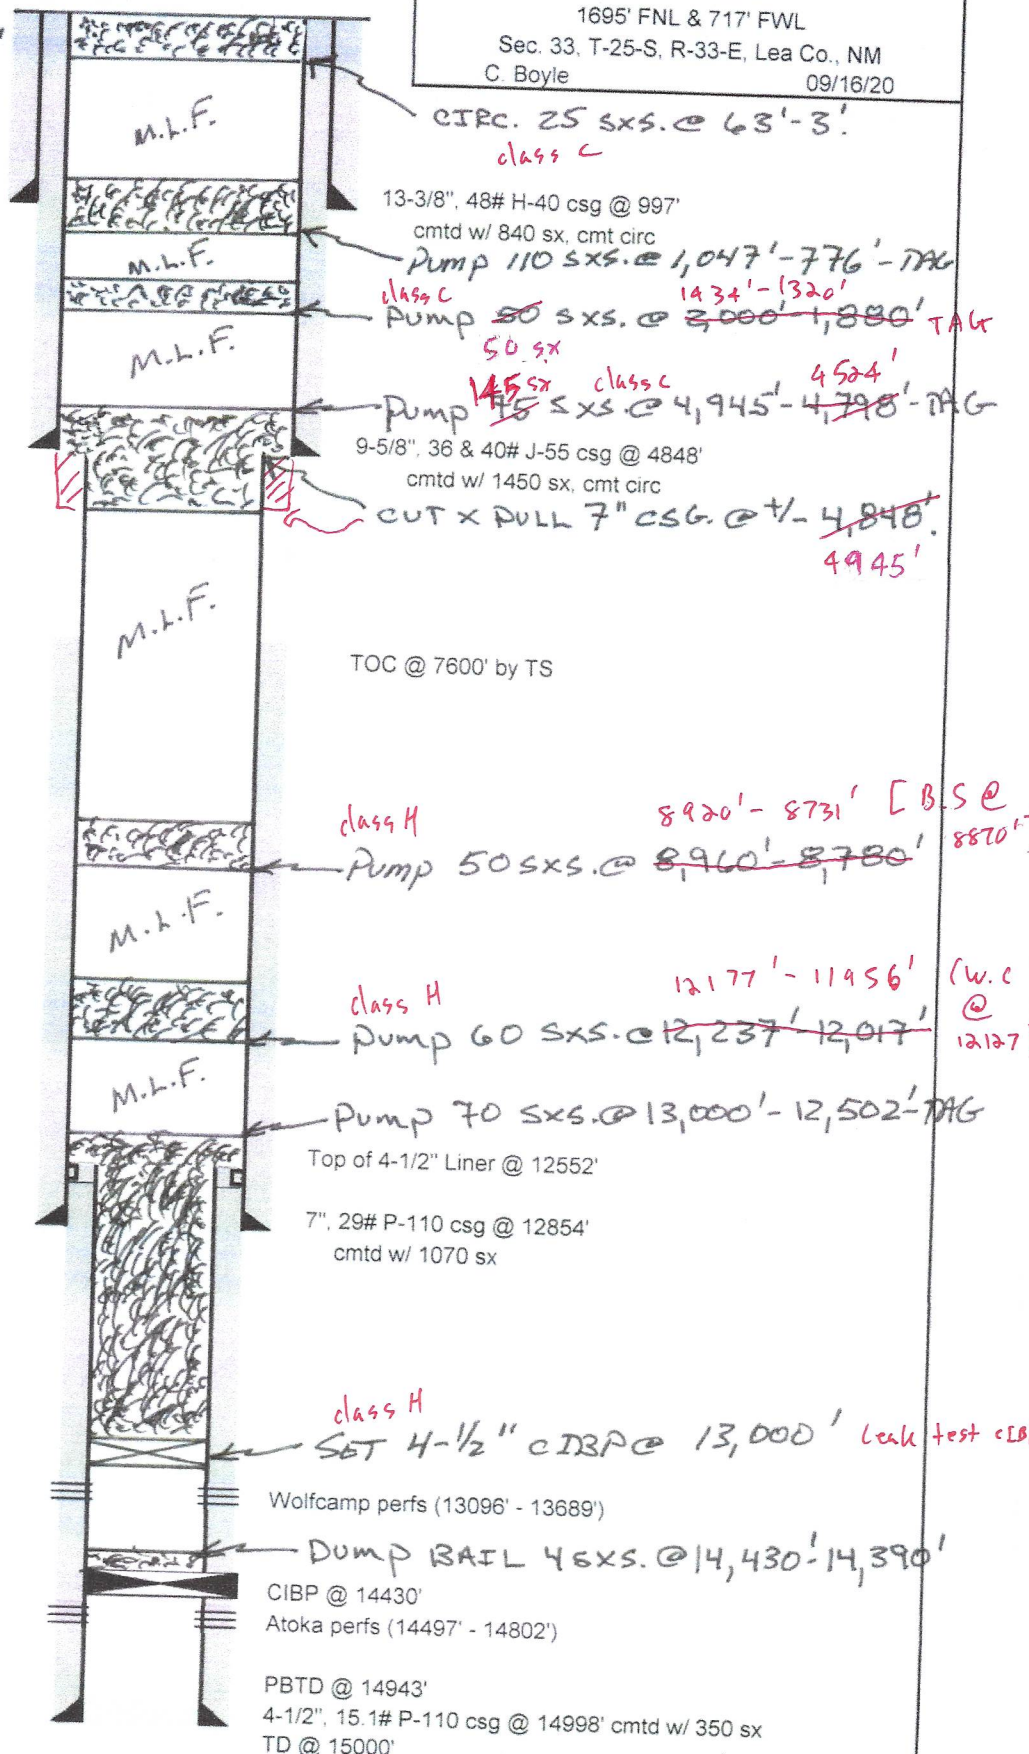 1695' FNL & 717' FWL
Sec. 33, T-25-S, R-33-E, Lea Co., NM
C. Boyle 09/16/20
M.L.F.
CIRC. 25 SXS. @ 63'-3'.
class C
13-3/8", 48# H-40 csg @ 997'
cmtd w/ 840 sx, cmt circ
M.L.F.
Pump 110 SXS. @ 1,047'-776'-TAG
class C 1434'-1320'
Pump 50 SXS. @ 2,000'-1,880' TAG
50 sx
M.L.F.
145 sx class c 4524'
Pump 75 SXS. @ 4,945'-4,798'-TAG
9-5/8", 36 & 40# J-55 csg @ 4848'
cmtd w/ 1450 sx, cmt circ
CUT X PULL 7" CSG. @ +/- 4,848'.
4945'
M.L.F.
TOC @ 7600' by TS
class H 8920'-8731' [B.S @
8870']
Pump 50 SXS. @ 8,960'-8,780'
M.L.F.
class H 12177'-11956' (W.C
@
12127
Pump 60 SXS. @ 12,237'-12,017'
M.L.F.
Pump 70 SXS. @ 13,000'-12,502'-TAG
Top of 4-1/2" Liner @ 12552'
7", 29# P-110 csg @ 12854'
cmtd w/ 1070 sx
class H
SET 4-1/2" CIBP @ 13,000' Leak test CIB
Wolfcamp perfs (13096' - 13689')
Dump BAIL 4 SXS. @ 14,430'-14,390'
CIBP @ 14430'
Atoka perfs (14497' - 14802')
PBTD @ 14943'
4-1/2", 15.1# P-110 csg @ 14998' cmtd w/ 350 sx
TD @ 15000'